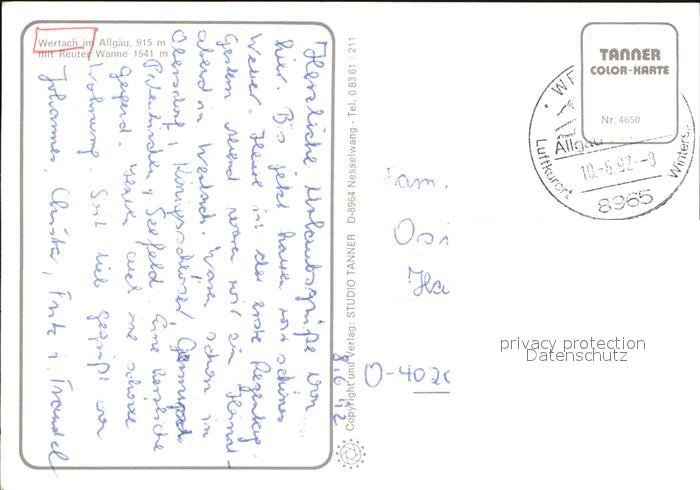 Wertach im Allgäu, 915 m
mit Reuter Wanne 1541 m
Herzliche Urlaubsgrüße von
hier. Bis jetzt hatten wir schönes
Wetter. Heute ist der erste Regentag.
Gestern Abend waren wir zum Heimat-
abend in Wertach. Waren schon in
Oberstdorf, Königsschlösser, Garmisch
Partenkirchen, Seefeld. Eine herrliche
Gegend. Haben auch eine schöne
Wohnung. Seid lieb gegrüßt von
Johannes, Christa, Fritz u. Traudel
8.6.92
Copyright und Verlag: STUDIO TANNER D-8964 Nesselwang - Tel. 0 83 61 / 211
TANNER
COLOR-KARTE
Nr. 4650
Allgäu
10.-6.92.-9
Luftkurort
Winters
8965
Fam.
O-402
privacy protection
Datenschutz